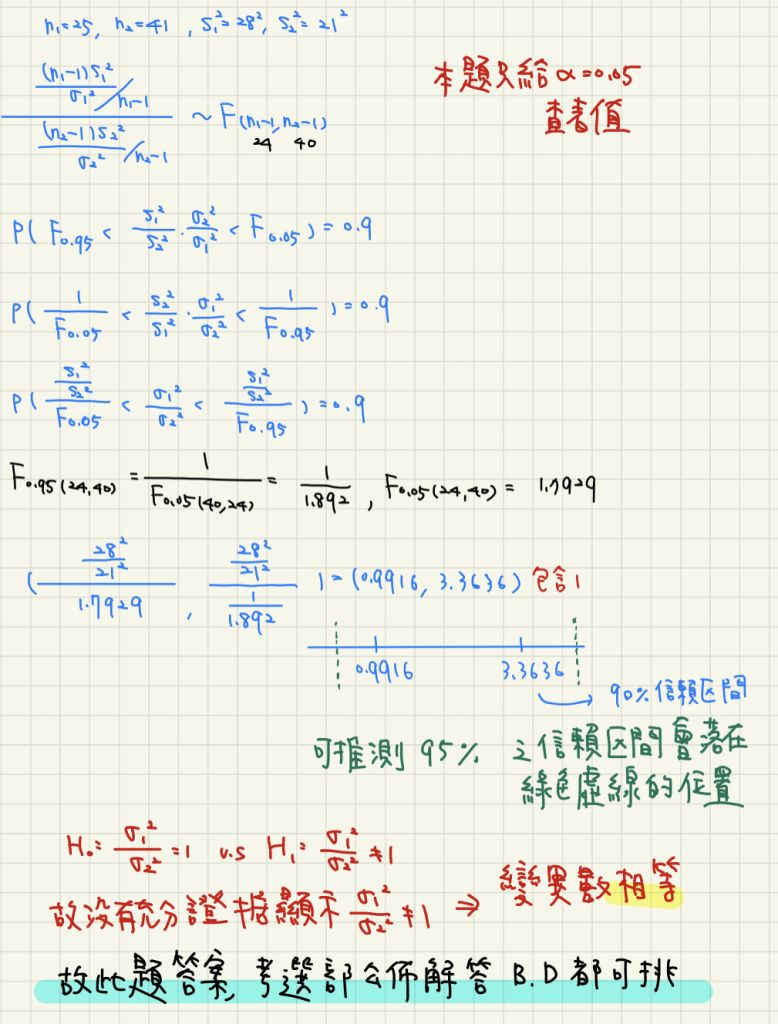 n₁=25, n₂=41, S₁²=28², S₂²=21²
本題只給 α=0.05
查表值
((n₁-1)S₁²/σ₁² / n₁-1) / ((n₂-1)S₂²/σ₂² / n₂-1) ~ F(n₁-1, n₂-1)
24 40
P( F0.95 < S₁²/S₂² · σ₂²/σ₁² < F0.05 ) = 0.9
P( 1/F0.05 < S₂²/S₁² · σ₁²/σ₂² < 1/F0.95 ) = 0.9
P( (S₁²/S₂²)/F0.05 < σ₁²/σ₂² < (S₁²/S₂²)/F0.95 ) = 0.9
F0.95(24,40) = 1/F0.05(40,24) = 1/1.892, F0.05(24,40) = 1.7929
( (28²/21²)/1.7929, (28²/21²)/(1/1.892) ) = (0.9916, 3.3636) 包含1
0.9916 3.3636
90%信賴区間
可推測 95% 之信賴区間會落在
綠色虛線的位置
H₀: σ₁²/σ₂² = 1 v.s H₁: σ₁²/σ₂² ≠ 1
故沒有充分證據顯示 σ₁²/σ₂² ≠ 1 ⇒ 變異數相等
故此題答案, 考選部公佈解答 B.D 都可拼